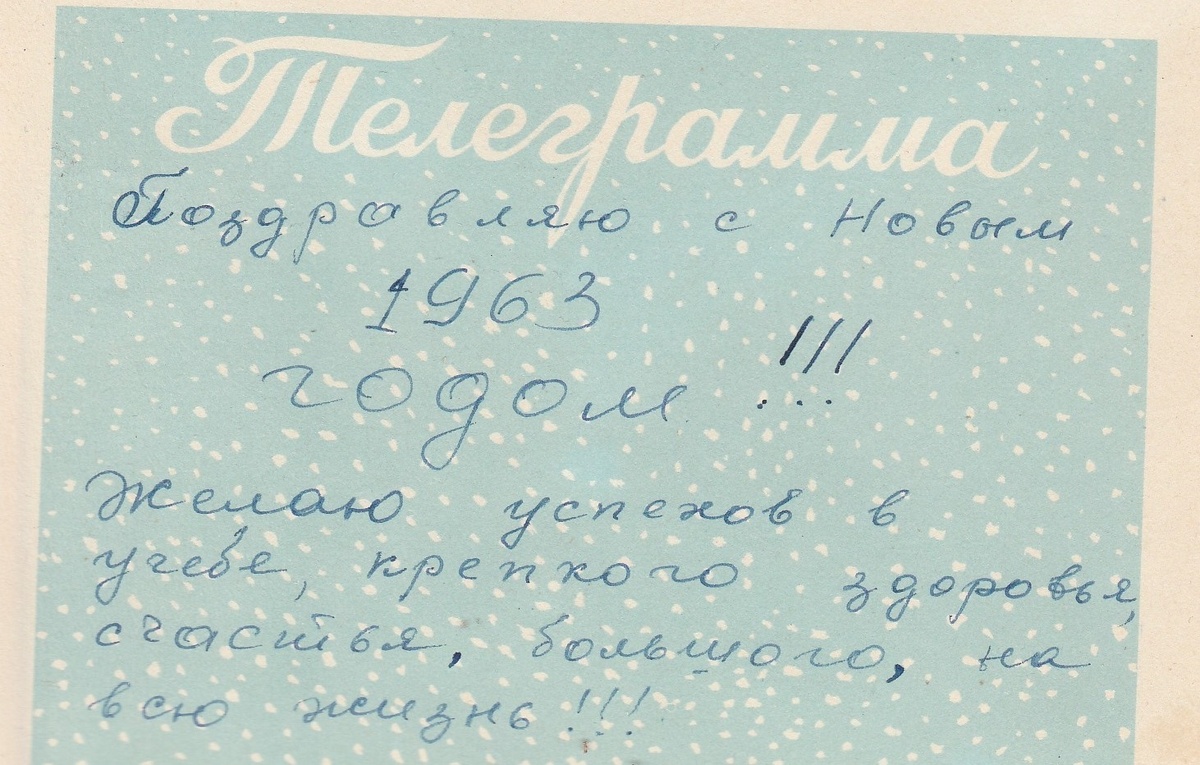 Телеграмма
Поздравляю с Новым
1963
годом !!!
Желаю успехов в
учебе, крепкого здоровья,
счастья, большого, на
всю жизнь!!!